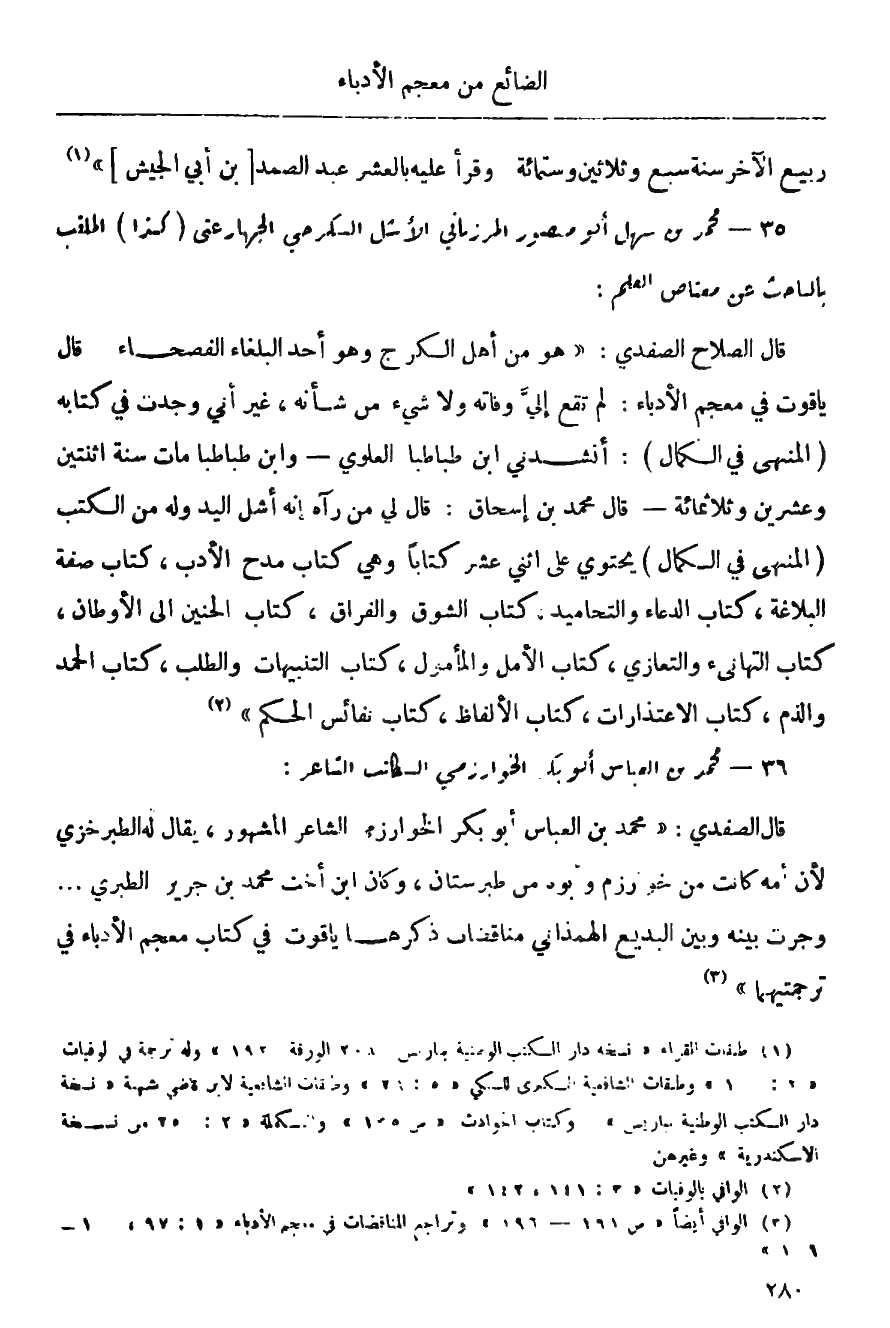 الضائع من معجم الأدباء
ربيع الآخر سنة سبع وثلاثين وستمائة وقرأ عليه بالعشر عبد الصمد [ بن أبي الجيش ] » (١)
٣٥ — محمد بن سهل أبو منصور المرزباني الأشل الكرجي الجهارعتى ( كذا ) الملقب
بالباحث عن معتاص العلم :
قال الصلاح الصفدي : « هو من أهل الكرج وهو أحد البلغاء الفصحاء قال
ياقوت في معجم الأدباء : لم تقع إليَّ وفاته ولا شيء من شأنه ، غير أني وجدت في كتابه
( المنتهى في الكمال ) : أنشدني ابن طباطبا العلوي — وابن طباطبا مات سنة اثنتين
وعشرين وثلاثمائة — قال محمد بن إسحاق : قال لي من رآه إنه أشل اليد وله من الكتب
( المنتهى في الكمال ) يحتوي على اثني عشر كتاباً وهي كتاب مدح الأدب ، كتاب صفة
البلاغة ، كتاب الدعاء والتحاميد . كتاب الشوق والفراق ، كتاب الحنين الى الأوطان ،
كتاب التهانىء والتعازي ، كتاب الأمل والمأمول ، كتاب التنبيهات والطلب ، كتاب الحمد
والذم ، كتاب الاعتذارات ، كتاب الألفاظ ، كتاب نفائس الحكم » (٢)
٣٦ — محمد بن العباس أبو بكر الخوارزمي الكاتب الشاعر :
قال الصفدي : « محمد بن العباس أبو بكر الخوارزمي الشاعر المشهور ، يقال له الطبرخزي
لأن أمه كانت من خوارزم وأبوه من طبرستان ، وكان ابن أخت محمد بن جرير الطبري ...
وجرت بينه وبين البديع الهمذاني مناقضات ذكرها ياقوت في كتاب معجم الأدباء في
ترجمتيهما » (٣)
(١) طبقات القراء « نسخة دار الكتب الوطنية بباريس الورقة » وله ترجمة في الوفيات
« ٢ : » وطبقات الشافعية الكبرى للسبكي « ٥ : » وطبقات الشافعية لابن قاضي شهبة « نسخة
دار الكتب الوطنية بباريس » وكتاب الحوادث « ص » والتكملة « ٢ : من نسخة
الاسكندرية » وغيرهن
(٢) الوافي بالوفيات « ٣ : ١٤١ ، ١٤٢ »
(٣) الوافي أيضاً « ص ١٩١ — ١٩٦ » وتراجم المناقضات في معجم الأدباء « ١ : ٩٧ ،
٢٨٠